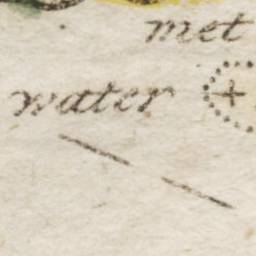 met
water